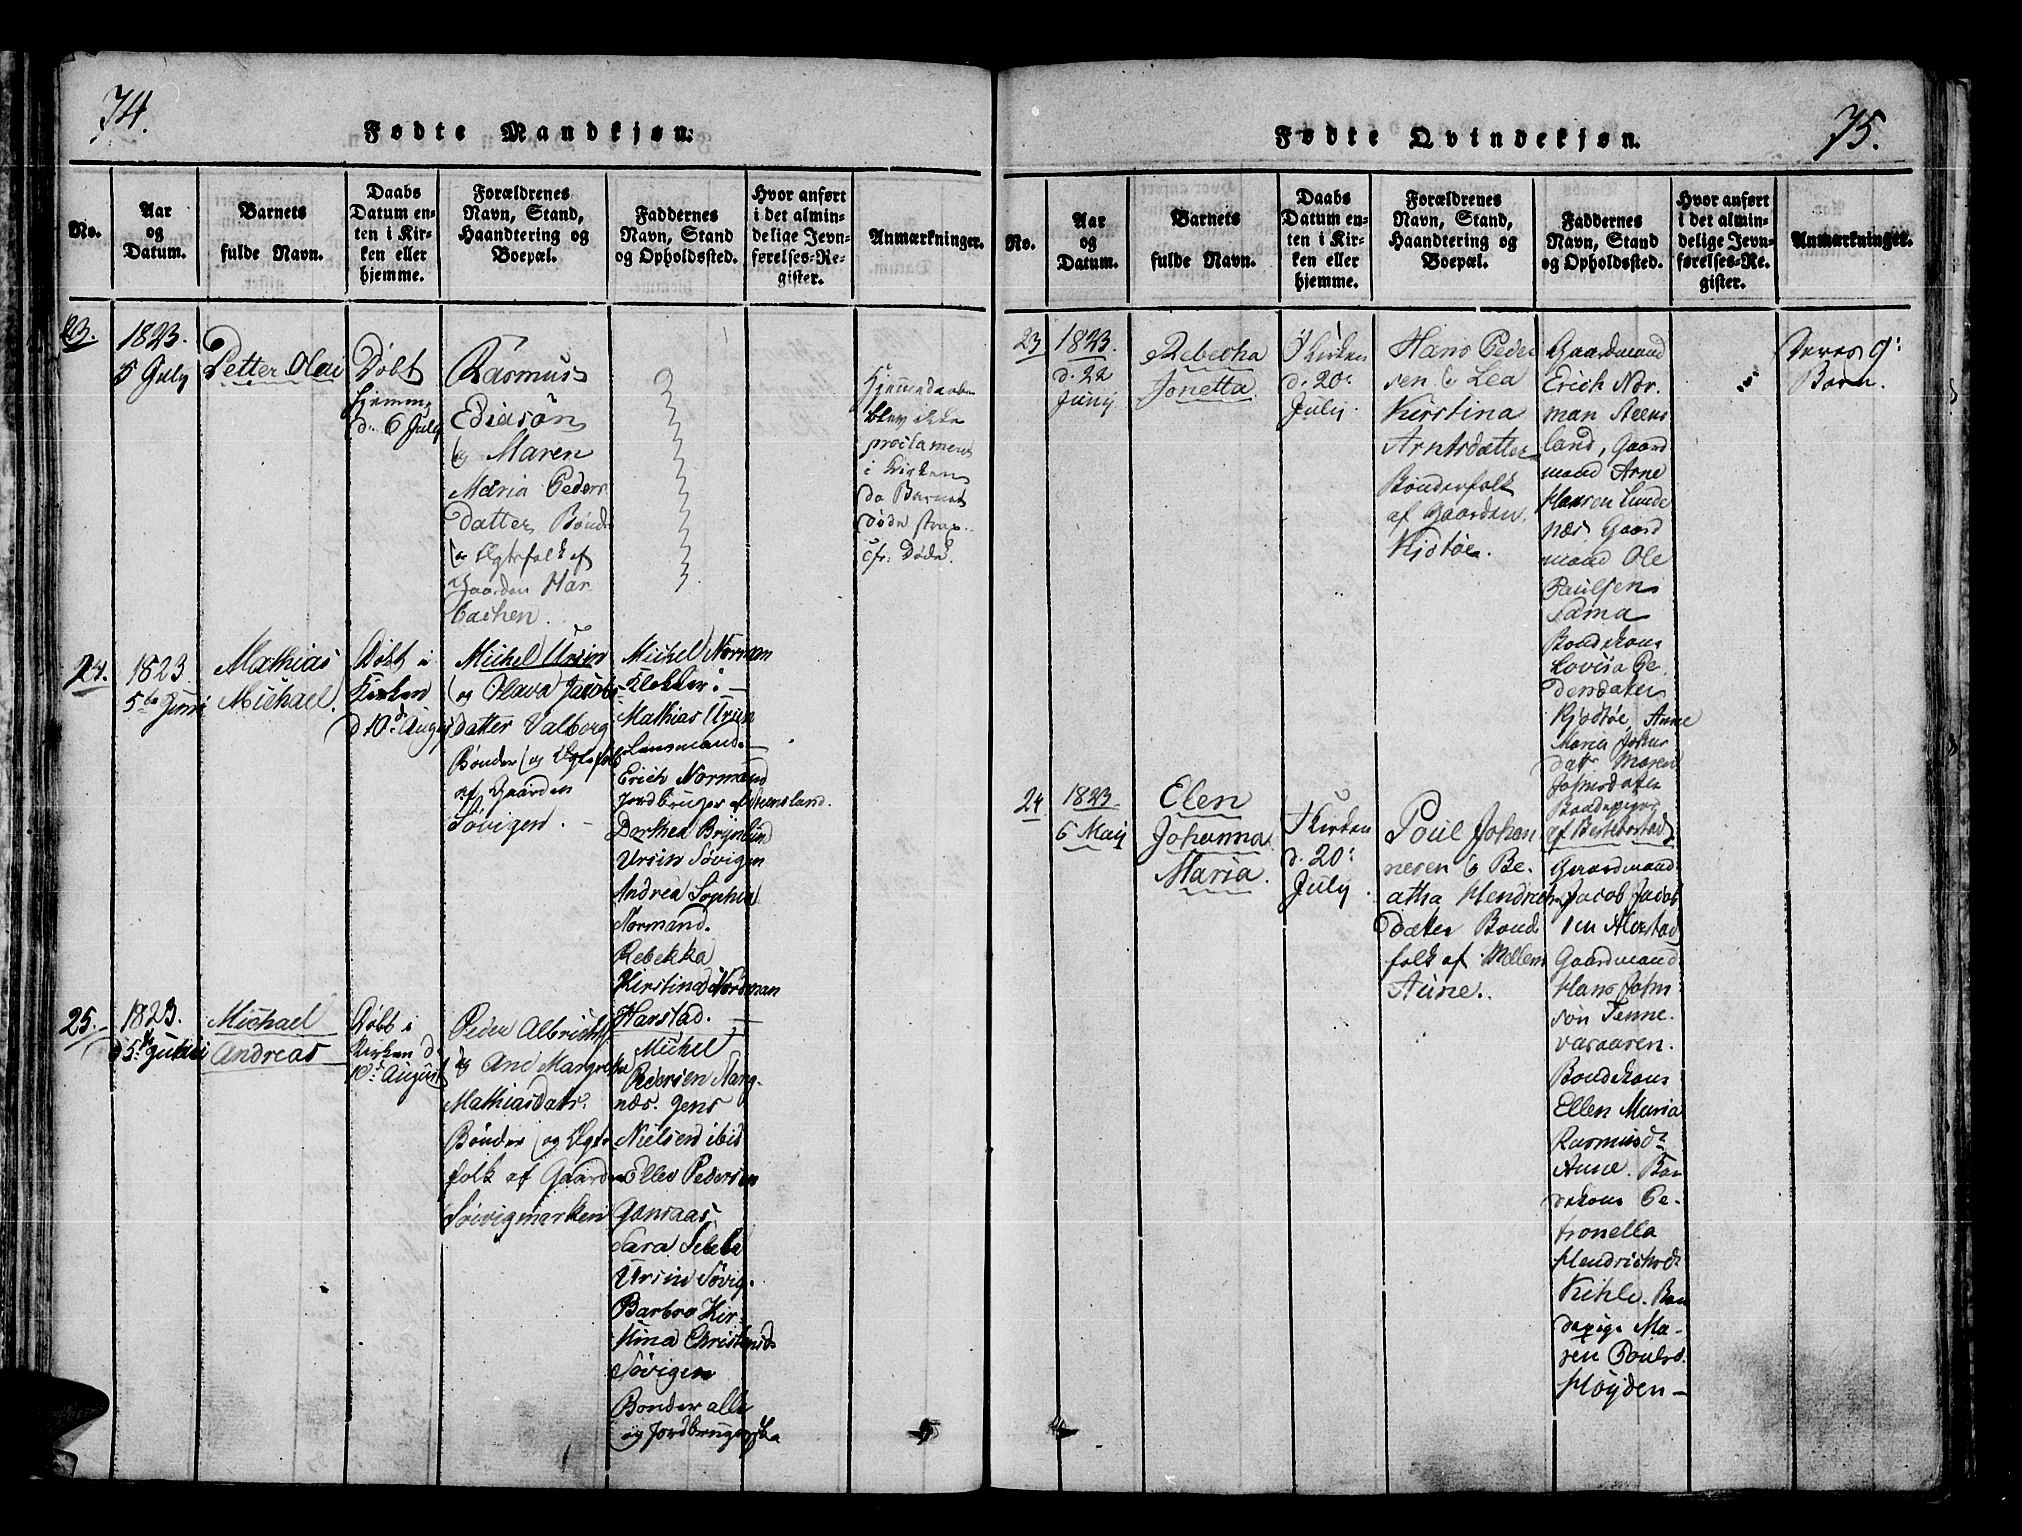 74.
Fødte Mandkjøn.
No.
Aar
og
Datum.
Barnets
fulde Navn.
Daabs
Datum en-
ten i Kir-
ken eller
hjemme.
Forældrenes
Navn, Stand,
Haandtering og
Boepæl.
Faddernes
Navn, Stand
og Opholdssted.
Hvor anført
i det almin-
delige Jevn-
førelses-Re-
gister.
Anmærkninger.
23.
1823.
5 July
Petter Olai
Døbt
hjemme
d. 6 July
Rasmus
og Maren
Maria Peders
datter Bønd
og Ægtefolk af
Gaarden Har
bachen.
Hjemmedaaben
blev ikke
i Kirken
da Barnet
døde strax.
cfr. Døde
24.
1823.
Mathias
Michael.
Døbt i
Kirken
d 10d August
Michel Ursin
og Olava Jacobs
datter Valberg
Bønder og Ægtefolk
af Gaarden
Søvigen. –
Michel Norman
Klokker. –
Mathias Ursin
Lensmand. –
Erich Normand
Jordbruger af Steensland.
Dorthea Brynlund
Ursin Søvigen
Andrea Sophia
Normand.
Rebekka
Kirstina Nordman
Harstad. –
25.
1823.
Michael
Andreas
Døbt i
Kirken d.
10d August
Peder Albricht
og Ane Margretha
Mathiasdatr.
Bønder og Ægte
folk af Gaarden
Søvigmarken
Michel
Pedersen Marg-
næs. Jens
Nielsen ibid
Elles Pedersen
Gausaas
Ursin Søvig.
Barbro Kir
stina Christensd
Søvigen
Bønder alle
og Jordbrugende
75.
Fødte Qvindekjøn.
No.
Aar
og
Datum.
Barnets
fulde Navn.
Daabs
Datum en-
ten i Kir-
ken eller
hjemme.
Forældrenes
Navn, Stand,
Haandtering og
Boepæl.
Faddernes
Navn, Stand
og Opholdssted.
Hvor anført
i det almin-
delige Jevn-
førelses-Re-
gister.
Anmærkninger.
23
1823.
d. 22
Juny
Rebecha
Jonetta.
I Kirken
d. 20.
July.
Hans Peder
sen & Lea
Kirstina
Arntsdatter
Bønderfolk
af Gaarden
Kjøtøe.
Gaardmand
Erich Nor.
man Steens
land, Gaard
mand Arne
Hansen Lunde
næs. Gaard
mand Ole
Paulsen
Sama
Bondekone
Lovisa Pe
dersdatter
Kjøtøe, Anne
Maria Johns
datr Maren
Johnsdatter
Bondepiger
Deres 9.
Barn.
24
1823.
6 Maij
Elen
Johanna
Maria.
I Kirken
d. 20.
July.
Poul Johan
nesen & Be-
atha Hendrichs
datter Bond
folk af Mellem
Aune.
Gaardmand
Jacob Jacob
sen
Gaardmand
Hans John
son Tenne-
vasaaren.
Bondekone
Ellen Maria
Rasmusdr
Aune. Bon
dekone Pe-
tronella
Hendrichsdr
Kihle. Bon
depige Ma-
ren Poulsd.
Høyden –